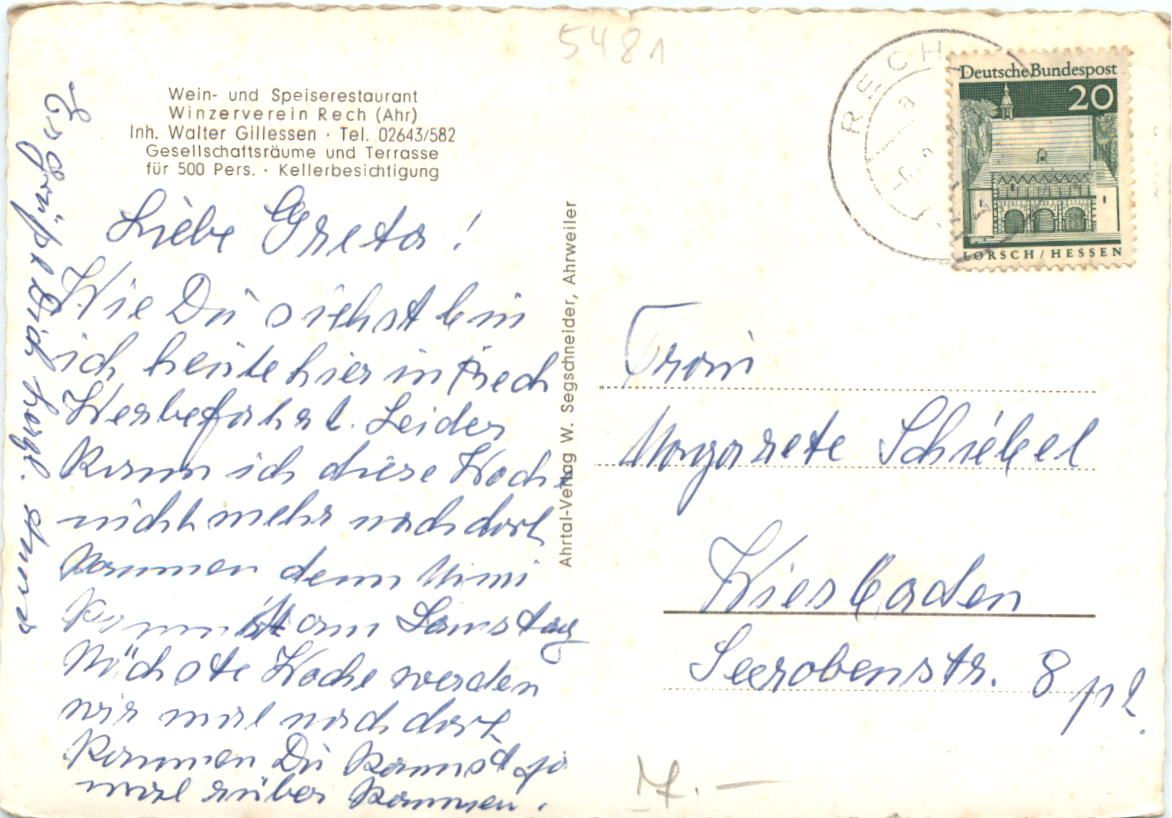 5481
Wein- und Speiserestaurant
Winzerverein Rech (Ahr)
Inh. Walter Gillessen · Tel. 02643/582
Gesellschaftsräume und Terrasse
für 500 Pers. · Kellerbesichtigung
Liebe Greta!
Wie Du siehst bin
ich heute hier in Rech
Werbefahrt. Leider
kann ich diese Woche
nicht mehr nach dort
kommen denn Mimi
kommt am Samstag
Nächste Woche werden
wir mal nach dort
kommen Du kannst ja
mal rüber kommen.
Es grüßt Dich herzl. Anna
Ahrtal-Verlag W. Segschneider, Ahrweiler
RECH
Deutsche Bundespost
20
LORSCH/HESSEN
Frau
Margarete Schiebel
Wiesbaden
Seerobenstr. 8 pt.